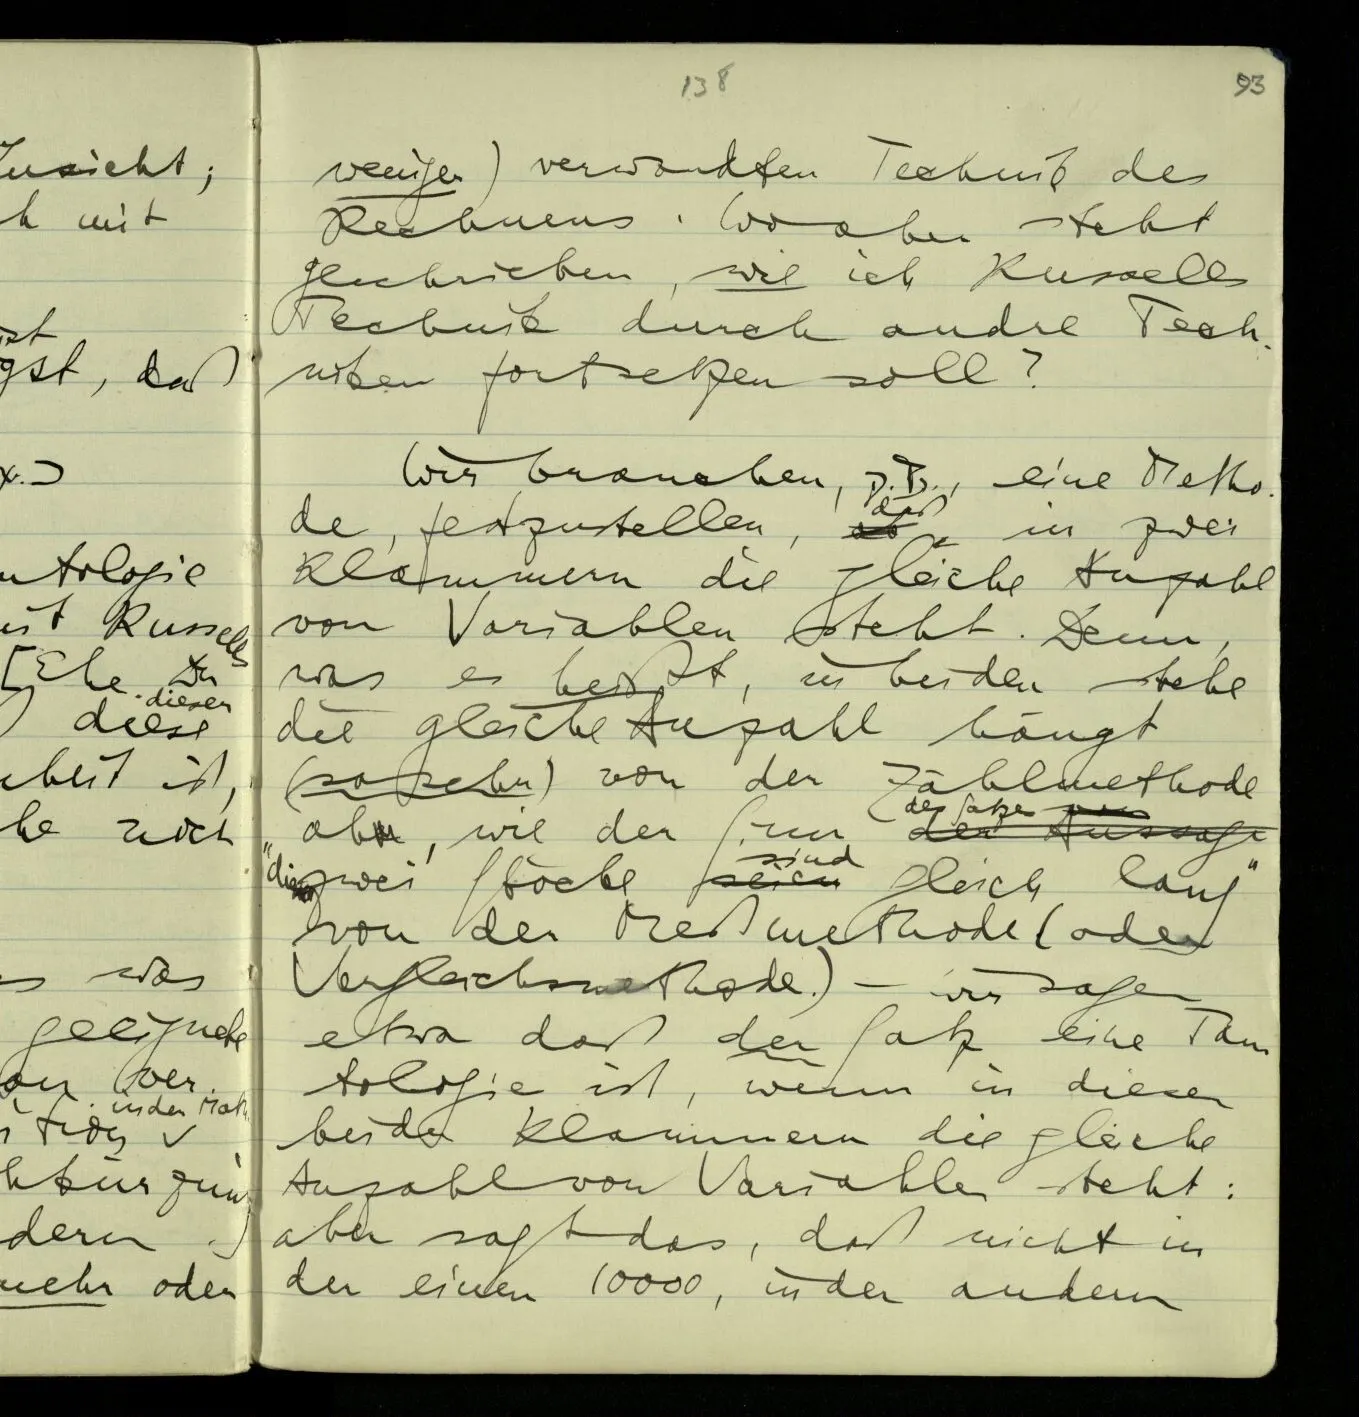 138 93
weniger) verwandten Technik des
Rechnens. Wo aber steht
geschrieben, wie ich Russells
Technik durch andre Tech-
niken fortsetzen soll?
Wir brauchen, z.B., eine Metho-
de, festzustellen, ob daß in zwei
Klammern die gleiche Anzahl
von Variablen steht. Denn,
was es heißt, in beiden stehe
die gleiche Anzahl hängt
(sozusehn) von der Zählmethode
ab, wie der Sinn der Aussage des Satzes von
"diese zwei Stöcke seien sind gleich lang"
von der Meßmethode (oder
Vergleichsmethode.) – wir sagen
etwa daß der Satz eine Tau-
tologie ist, wenn in diesen
beiden Klammern die gleiche
Anzahl von Variablen steht:
aber sagt das, daß nicht in
der einen 10000, in der andern
Zusicht;
h mit
ist
gst, daß
x.)
utologie
mit Russells
[Ehe Du
diesen
) diese
beit ist,
he nich
s was
geeignete
on ver-
in der Math
ition
bkürzung
dern .)
mehr oder